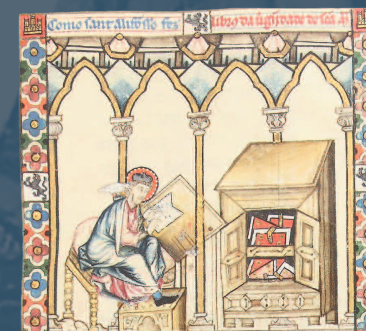 Como sant alifonsso fez libro da uirgĩidade de sca